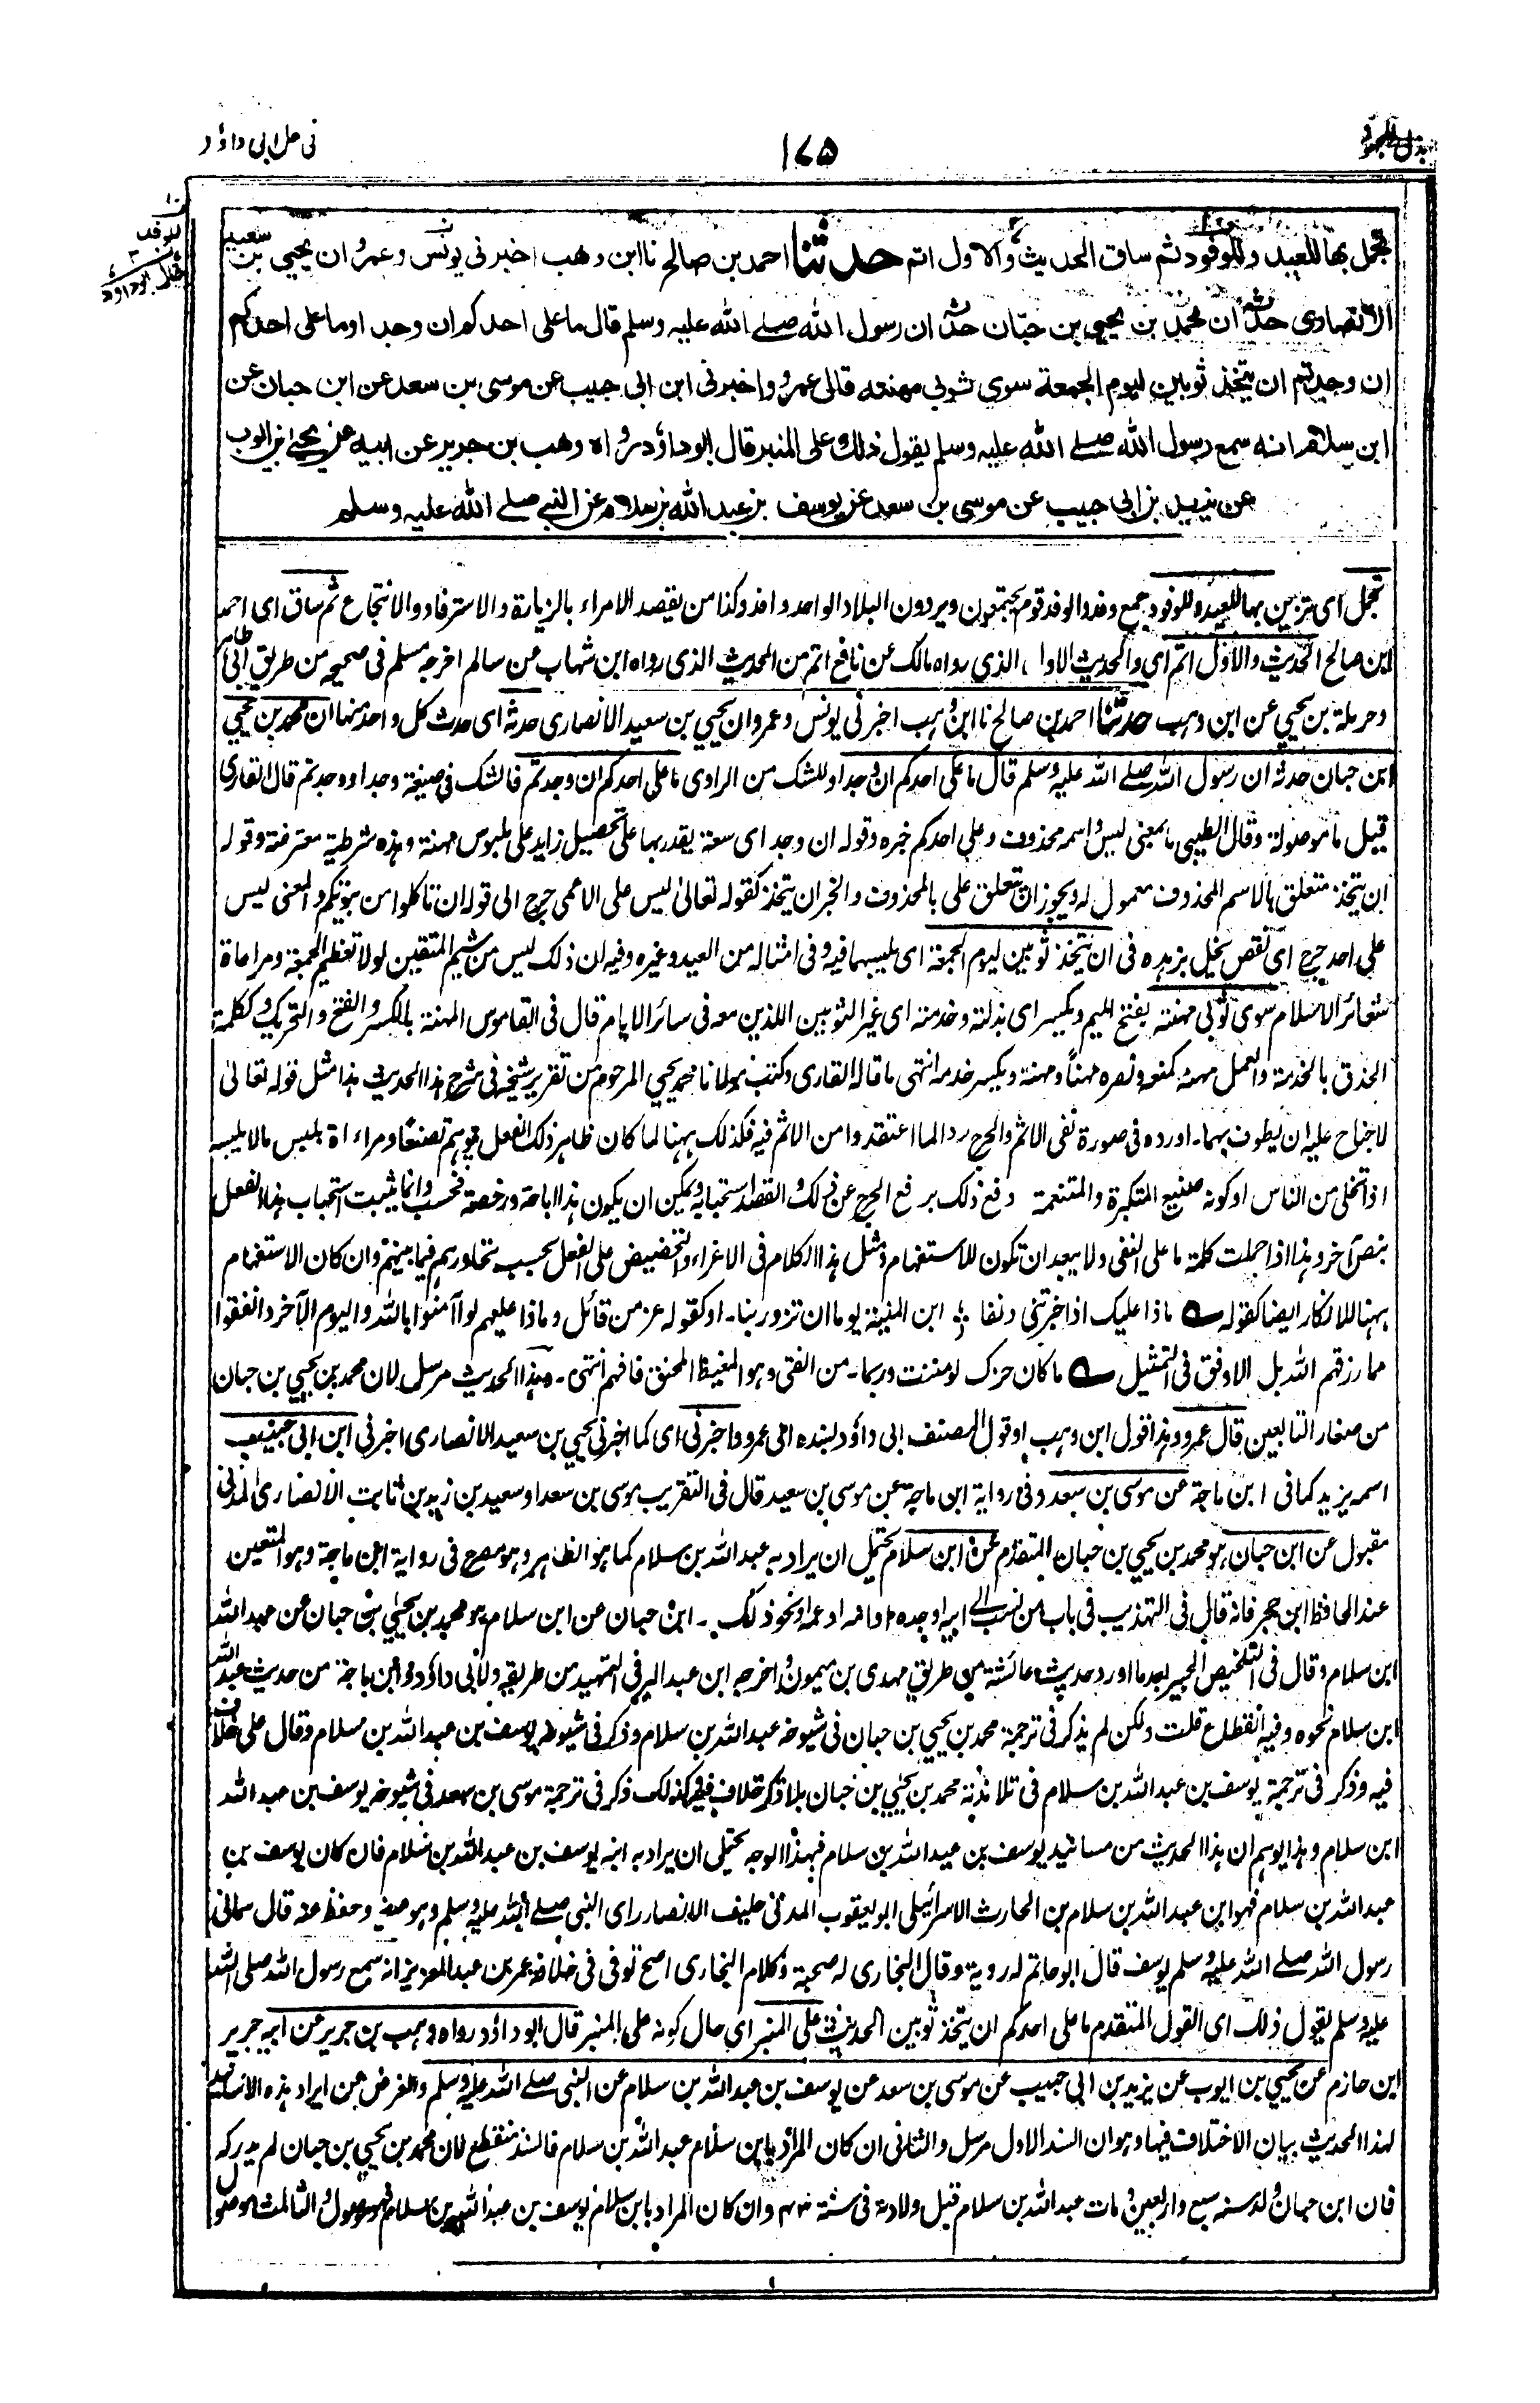 بذل المجهود
١٧٥
في حل ابي داؤد
تجمل بها للعيد وللوفود ثم ساق الحديث والاول اتم حدثنا احمد بن صالح نا ابن وهب اخبرني يونس وعمرو ان يحيى بن سعيد
الانصاري حدثه ان محمد بن يحيى بن حبان حدثه ان رسول الله صلے الله عليه وسلم قال ما على احدكم ان وجد او ما على احدكم
ان وجدتم ان يتخذ ثوبين ليوم الجمعة سوى ثوبي مهنته قال عمرو واخبرني ابن ابي حبيب عن موسى بن سعد عن ابن حبان عن
ابن سلام انه سمع رسول الله صلے الله عليه وسلم يقول ذلك على المنبر قال ابو داؤد رواه وهب بن جرير عن ابيه عن يحيى بن ايوب
عن يزيد بن ابي حبيب عن موسى بن سعد عن يوسف بن عبد الله بن سلام عن النبي صلے الله عليه وسلم
تجمل اى تزين بها للعيد وللوفود جمع وفد والوفد قوم يجتمعون ويردون البلاد الواحد وافد وكذا من يقصد الامراء بالزيارة والاسترفاد والانتجاع ثم ساق اى احمد
ابن صالح الحديث والاول اتم اى والحديث الاول الذي رواه مالك عن نافع اتم من الحديث الذى رواه ابن شهاب من سالم اخرجه مسلم فى صحيحه من طريق ابى طاهر
وحرملة بن يحيي عن ابن وهب حدثنا احمد بن صالح نا ابن وهب اخبرنى يونس وعمرو ان يحيي بن سعيد الانصارى حدثه اى حدث كل واحد منها ان محمد بن يحيي
ابن حبان حدثه ان رسول الله صلے الله عليه وسلم قال ما على احدكم ان وجد او للشك من الراوى ما على احدكم ان وجدتم فالشك فى صيغة وجد او وجدتم قال القارى
قيل ما موصولة وقال الطيبى ما بمعنى ليس واسمه محذوف وعلى احدكم خبره وقوله ان وجد اى سعة يقدر بها على تحصيل زايد على ملبوس مهنة وهذه شرطية معترضة وقوله
ان يتخذ متعلق بالاسم المحذوف معمول له ويجوز ان يتعلق على بالمحذوف والخبر ان يتخذ كقوله تعالى ليس على الاعمى حرج الى قوله ان تاكلوا من بيوتكم والمعنى ليس
على احد حرج اى نقص يخل بزهده فى ان يتخذ ثوبين ليوم الجمعة اى يلبسهما فيه وفى امثاله من العيد وغيره وفيه ان ذلك ليس من شيم المتقين لولا تعظيم الجمعة ومراعاة
شعائر الاسلام سوى ثوبى مهنته بفتح الميم ويكسر اى بذلته وخدمته اى غير الثوبين اللذين معه فى سائر الايام قال فى القاموس المهنة بالكسر والفتح والتحريك وككلمة
الحذق بالخدمة والعمل مهنه كمنعه ونصره مهناً ومهنة ويكسر خدمه انتهى ما قاله القارى وكتب مولانا محمد يحيي المرحوم من تقرير شيخه فى شرح هذا الحديث هذا مثل قوله تعالى
لا جناح عليه ان يطوف بهما۔ اورده فى صورة نفى الاثم والحرج رد الما اعتقدوا من الاثم فيه فكذلك ههنا لما كان ظاهر ذلك الفعل يوهم تصنعا ومراءاة بلبس مالا يلبسه
اذا تخلى من الناس او كونه صنيع المتكبرة والمتنعمة دفع ذلك برفع الحرج عن ذلك والقصد استحبابه ويمكن ان يكون هذا اباحة ورخصة فحسب وانما يثبت استحباب هذا الفعل
بنص آخر وهذا اذا حملت كلمة ما على النفى ولا يبعد ان تكون للاستفهام ومثل هذا الكلام فى الاغراء والتحضيض على الفعل بحسب تحاورهم فيما بينهم وان كان الاستفهام
ههنا للانكار ايضا كقوله ماذا عليك اذا خبرتنى دنفا ابن المنية يوما ان تزورينا۔ او كقوله عز من قائل وماذا عليهم لو آمنوا بالله واليوم الآخر وانفقوا
مما رزقهم الله بل الاوفق فى التمثيل ما كان ضرك لو مننت وربما۔ من الفتى وهو المغيظ المحنق فافهم انتهى۔ وهذا الحديث مرسل لان محمد بن يحيي بن حبان
من صغار التابعين قال عمرو وهذا قول ابن وهب او قول المصنف ابى داؤد بسنده الى عمرو واخبرنى اى كما اخبرنى يحيي بن سعيد الانصارى اخبرنى ابن ابى حبيب
اسمه يزيد كما فى ابن ماجة عن موسى بن سعد وفى رواية ابن ماجة عن موسى بن سعيد قال فى التقريب موسى بن سعد او سعيد بن زيد بن ثابت الانصارى المدنى
مقبول عن ابن حبان هو محمد بن يحيي بن حبان المتقدم عن ابن سلام يحتمل ان يراد به عبد الله بن سلام كما هو الظاهر وهو مصرح فى رواية ابن ماجة وهو المتعين
عند الحافظ ابن حجر فانه قال فى التهذيب فى باب من نسب الى ابيه او جده او امه او عمه او نحو ذلك۔ ابن حبان عن ابن سلام هو محمد بن يحيي بن حبان عن عبد الله
ابن سلام وقال فى التلخيص الحبير بعد ما اورد حديث عائشة من طريق مهدى بن ميمون واخرجه ابن عبد البر فى التمهيد من طريقه ولابى داؤد وابن ماجة من حديث عبد الله
ابن سلام نحوه وفيه انقطاع قلت ولكن لم يذكر فى ترجمة محمد بن يحيي بن حبان فى شيوخه عبد الله بن سلام وذكر فى شيوخه يوسف بن عبد الله بن سلام وقال على خلاف
فيه وذكر فى ترجمة يوسف بن عبد الله بن سلام فى تلامذته محمد بن يحيي بن حبان بلا ذكر خلاف فيه وكذلك ذكر فى ترجمة موسى بن سعد فى شيوخه يوسف بن عبد الله
ابن سلام وهذا يوهم ان هذا الحديث من مسانيد يوسف بن عبد الله بن سلام فبهذا الوجه يحتمل ان يراد به ابنه يوسف بن عبد الله بن سلام فان كان يوسف بن
عبد الله بن سلام فهو ابن عبد الله بن سلام بن الحارث الاسرائيلى ابو يعقوب المدنى حليف الانصار راى النبى صلے الله عليه وسلم وهو صغير وحفظ عنه قال سمانى
رسول الله صلے الله عليه وسلم يوسف قال ابو حاتم له روية وقال البخارى له صحبة وكلام البخارى اصح توفى فى خلافة عمر بن عبد العزيز انه سمع رسول الله صلى الله
عليه وسلم يقول ذلك اى القول المتقدم ما على احدكم ان يتخذ ثوبين الحديث على المنبر اى حال كونه على المنبر قال ابو داؤد رواه وهب بن جرير عن ابيه جرير
ابن حازم عن يحيي بن ايوب عن يزيد بن ابى حبيب عن موسى بن سعد عن يوسف بن عبد الله بن سلام عن النبى صلے الله عليه وسلم والغرض من ايراد هذه الاسانيد
لهذا الحديث بيان الاختلاف فيها وهو ان السند الاول مرسل والثانى ان كان المراد بابن سلام عبد الله بن سلام فالسند منقطع لان محمد بن يحيي بن حبان لم يدركه
فان ابن حبان ولد سنه سبع واربعين ومات عبد الله بن سلام قبل ولادته فى سنة ٤٣ وان كان المراد بابن سلام يوسف بن عبد الله بن سلام فهو موصول والثالث موصول